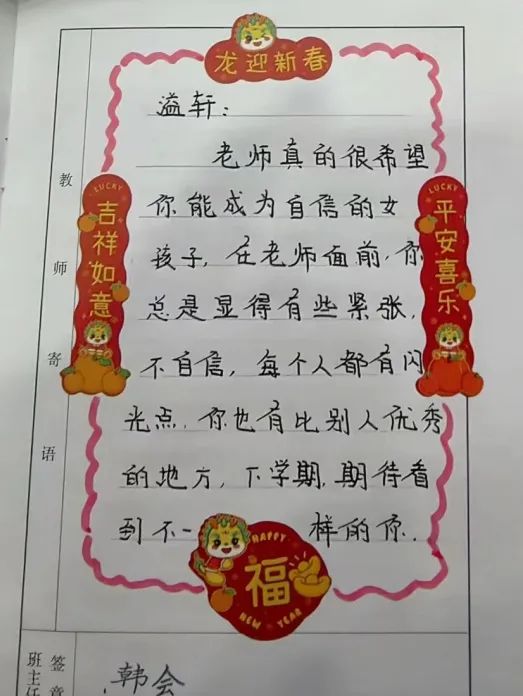 龙迎新春
溢轩：
老师真的很希望
你能成为自信的女
孩子，在老师面前，你
总是显得有些紧张，
不自信，每个人都有闪
光点，你也有比别人优秀
的地方，下学期，期待看
到不一样的你．
教师寄语
LUCKY
吉祥如意
LUCKY
平安喜乐
HAPPY
福
NEW YEAR
班主任
签章
韩会